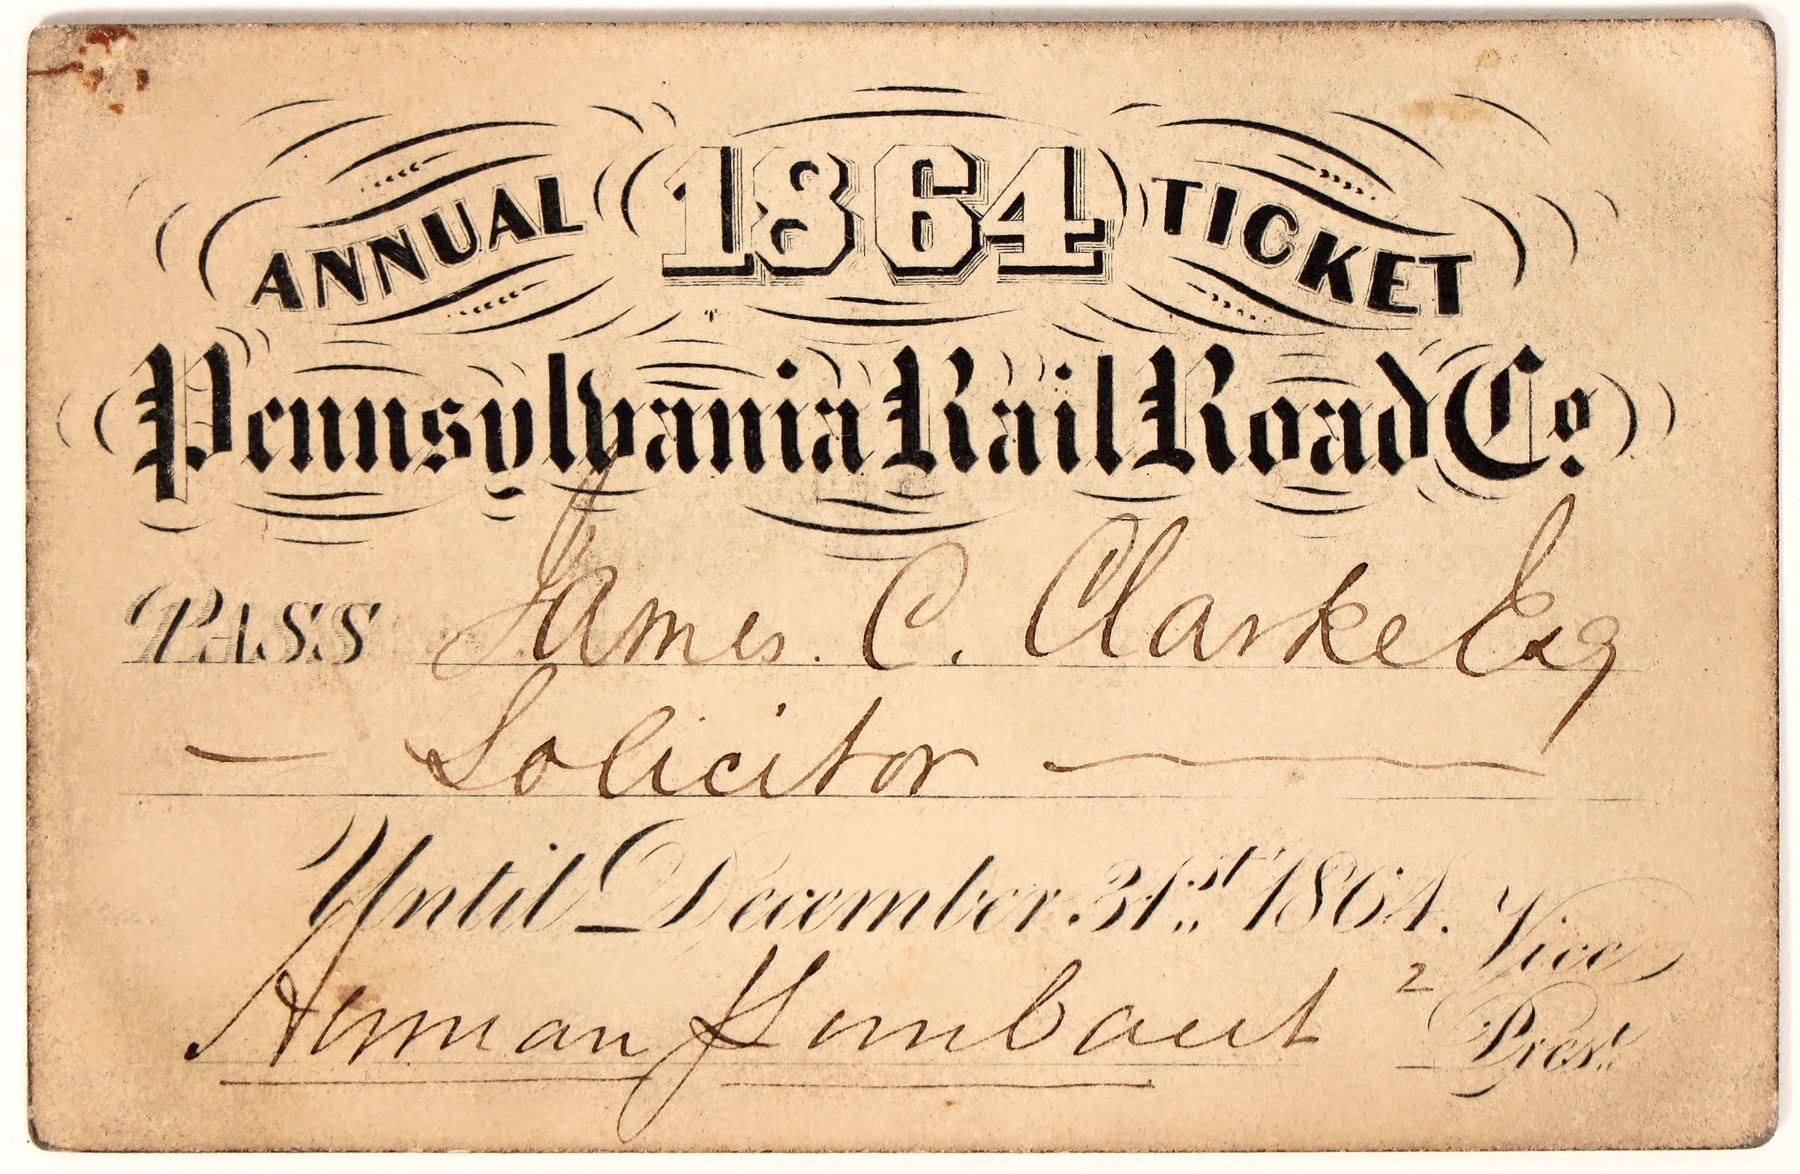 ANNUAL 1864 TICKET
Pennsylvania Rail Road Co.
PASS James C. Clarke Esq
Solicitor
Until December 31st 1864.
Herman Lombaert 2 Vice Pres.